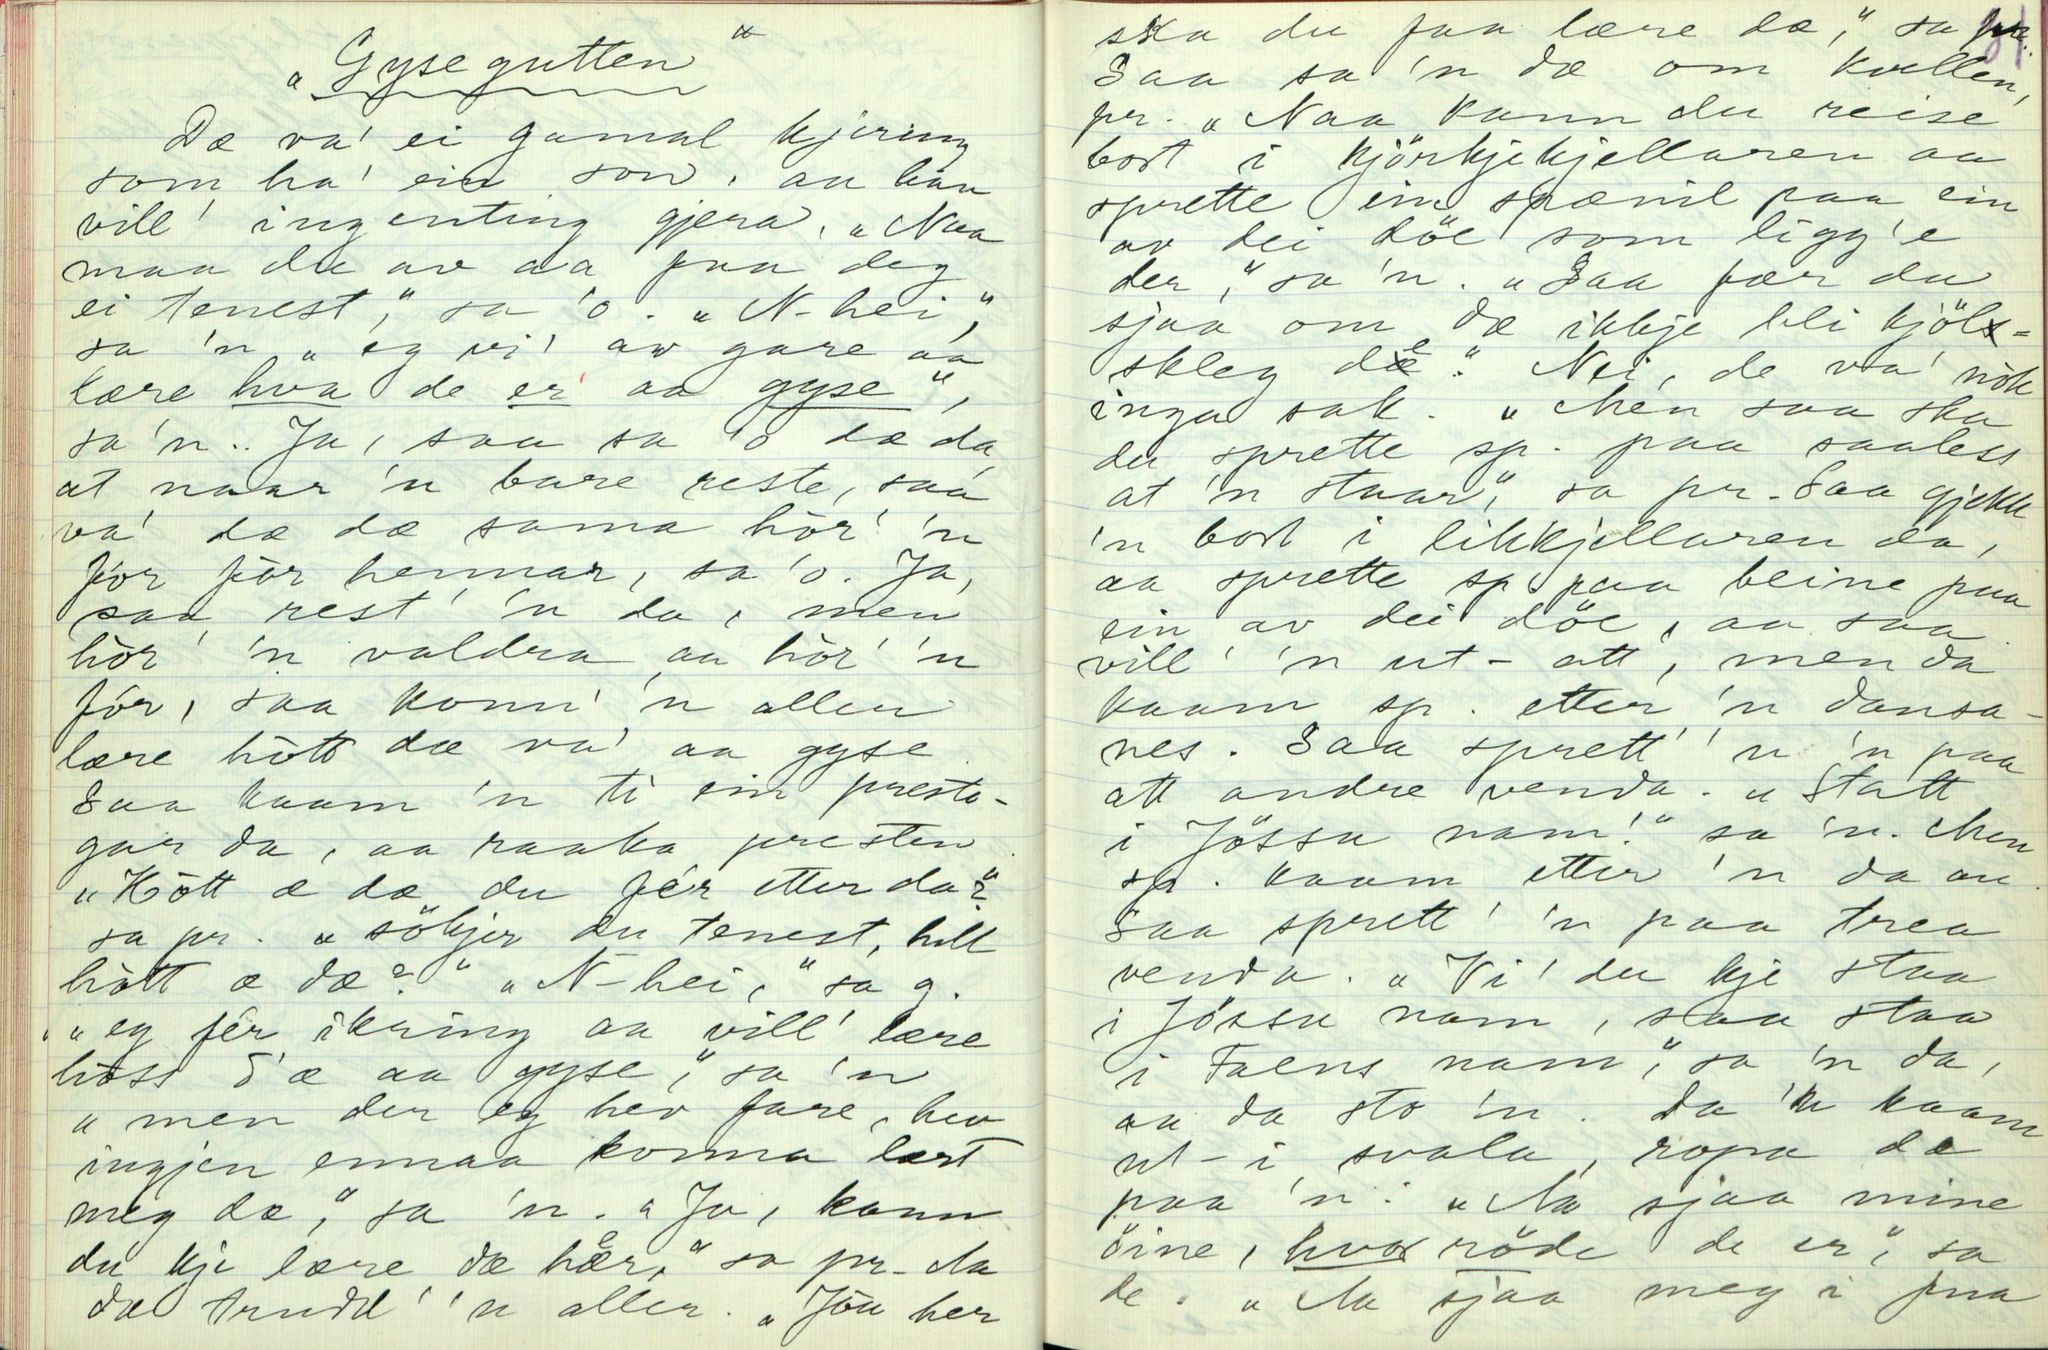 „Gysegutten"
Dæ va' ei gamal kjering
som ha' ein son, aa han
vill' ingenting gjera. „Naa
maa du av aa faa deg
ei tenest," sa 'o. „N-hei,"
sa 'n „eg vi' av gare aa
lære hva de er aa gyse",
sa 'n. Ja, saa sa 'o dæ da,
at naar 'n bare reste, saa
va' dæ dæ sama hòr' 'n
fòr fòr hennar, sa 'o. Ja,
saa rest' 'n da, men
hòr' 'n valdra aa hòr' 'n
fór, saa konn' 'n aller
lære hòtt dæ va' aa gyse.
Saa kaam 'n ti ein presta-
gar da, aa raaka presten.
„Hòtt æ dæ du fér etter da?"
sa pr. „sökjer du tenest, hell
hòtt æ dæ?" „N-hei," sa g.
„eg fér ikring aa vill' lære
hòss d'æ aa gyse," sa 'n
„men der eg hev fare, hev
ingjen ennaa konna lært
meg dæ," sa 'n. „Ja, kann
du kje lære dæ hèr," sa pr. Na
dæ trudd' 'n aller. „Jöu her
ska du faa lære dæ," sa pr.
Saa sa 'n dæ om kvellen,
pr. „Naa kann du reise
bort i kjörkjekjellaren aa
sprette ein spænil paa ein
av dei döe som ligg'e
der," sa 'n. „Saa fær du
sjaa om dæ ikkje bli kjöls-
skleg de." Nei, de va' nòk
inga sak. „Men saa ska
du sprette sp. paa saaless
at 'n staar," sa pr. Saa gjekk
'n bort i likkjellaren da,
aa sprette sp. paa beine paa
ein av dei döe, aa saa
vill' 'n ut-att, men da
kaam sp. etter 'n dansa-
nes. Saa sprett' 'n 'n paa
att andre venda. „Statt
i Jössu nam!" sa 'n. Men
sp. kaam etter 'n da au.
Saa sprett' 'n paa trea
venda. „Vi' du kje staa
i Jössu nam, saa staa
i Faens nam," sa 'n da,
aa da sto 'n. Da 'n kaam
ut-i svala, ropa dæ
paa 'n: „Na sjaa mine
öine, hvor röde de er", sa
de. „Na sjaa meg i fua